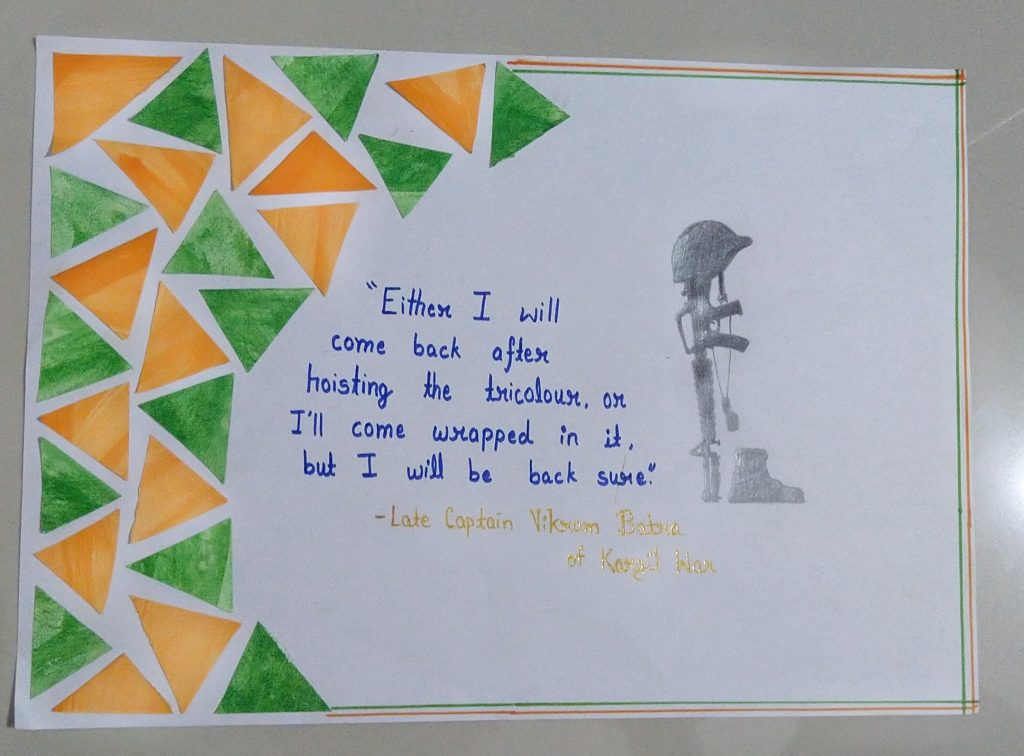 "Either I will
come back after
hoisting the tricolour, or
I'll come wrapped in it,
but I will be back sure."
-Late Captain Vikram Batra
of Kargil War